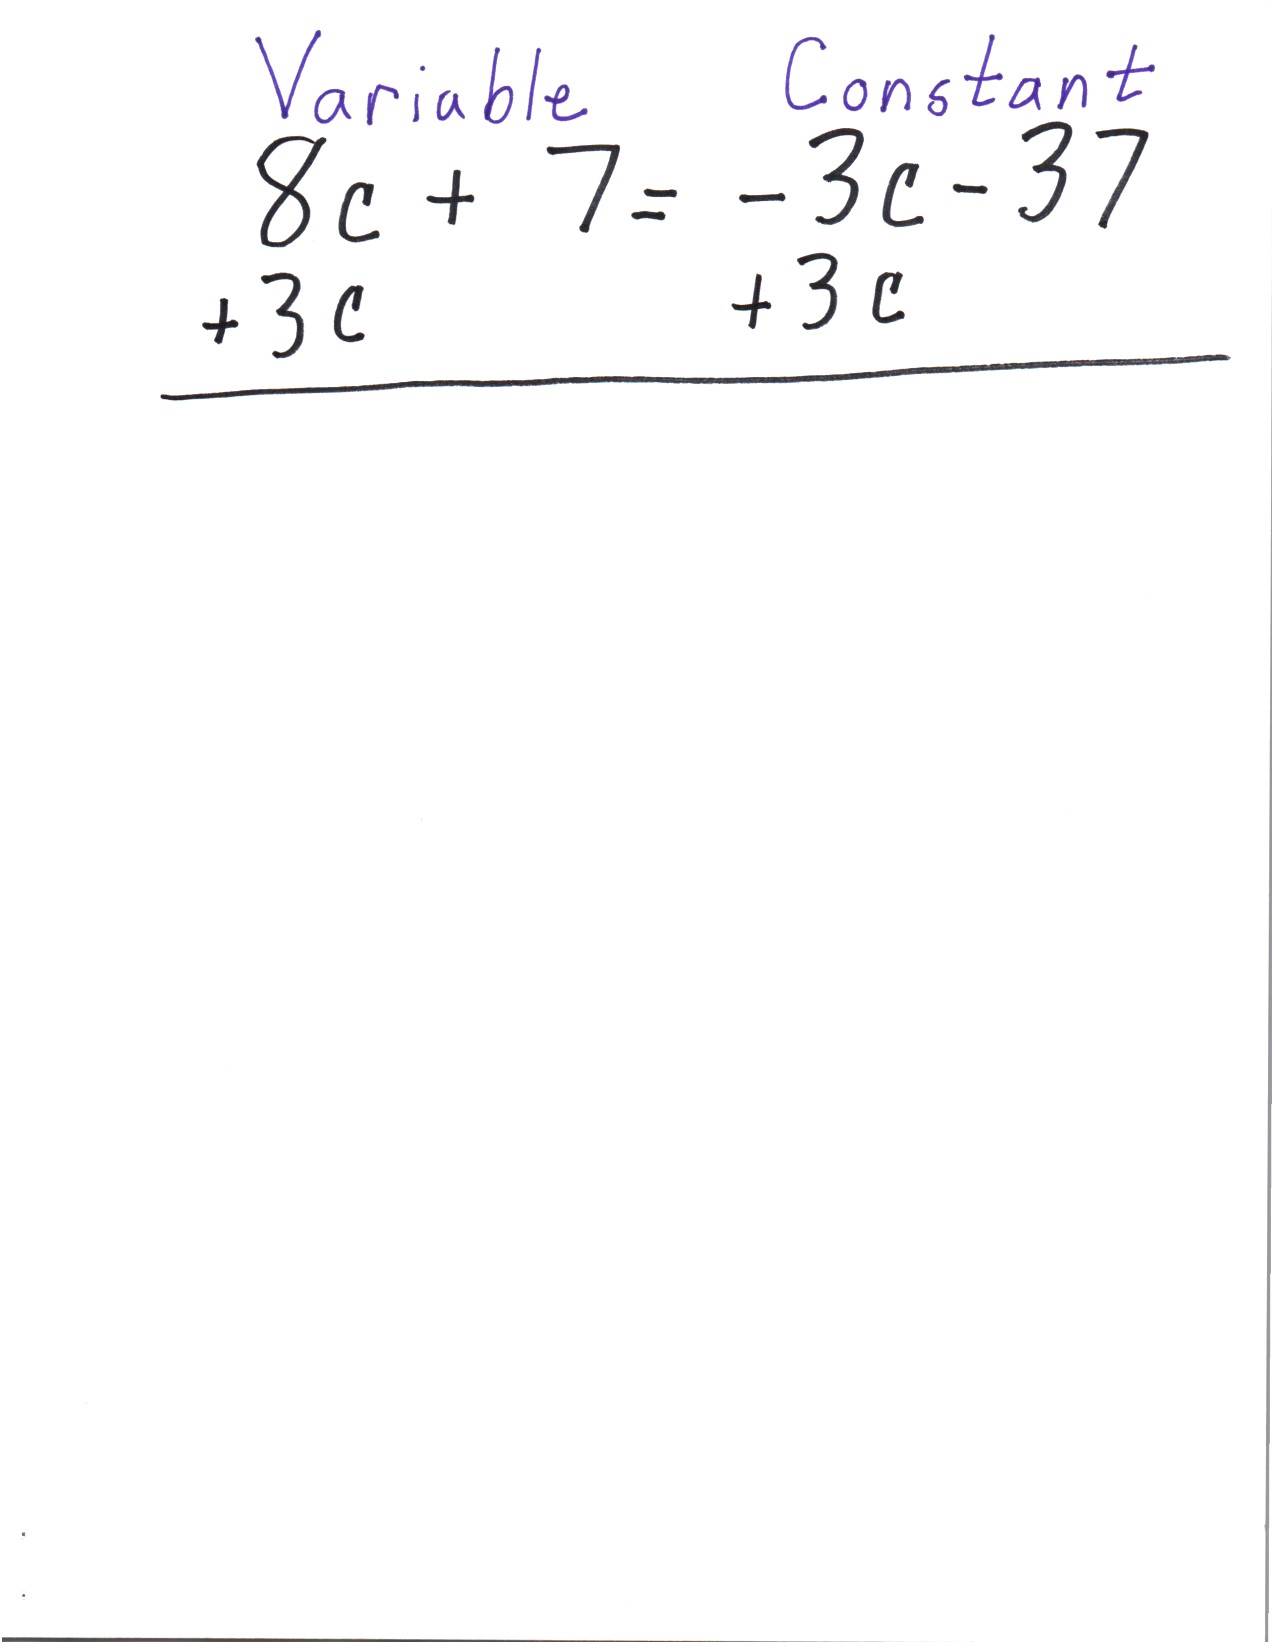 Variable Constant
8c + 7 = - 3c - 37
+ 3c + 3c